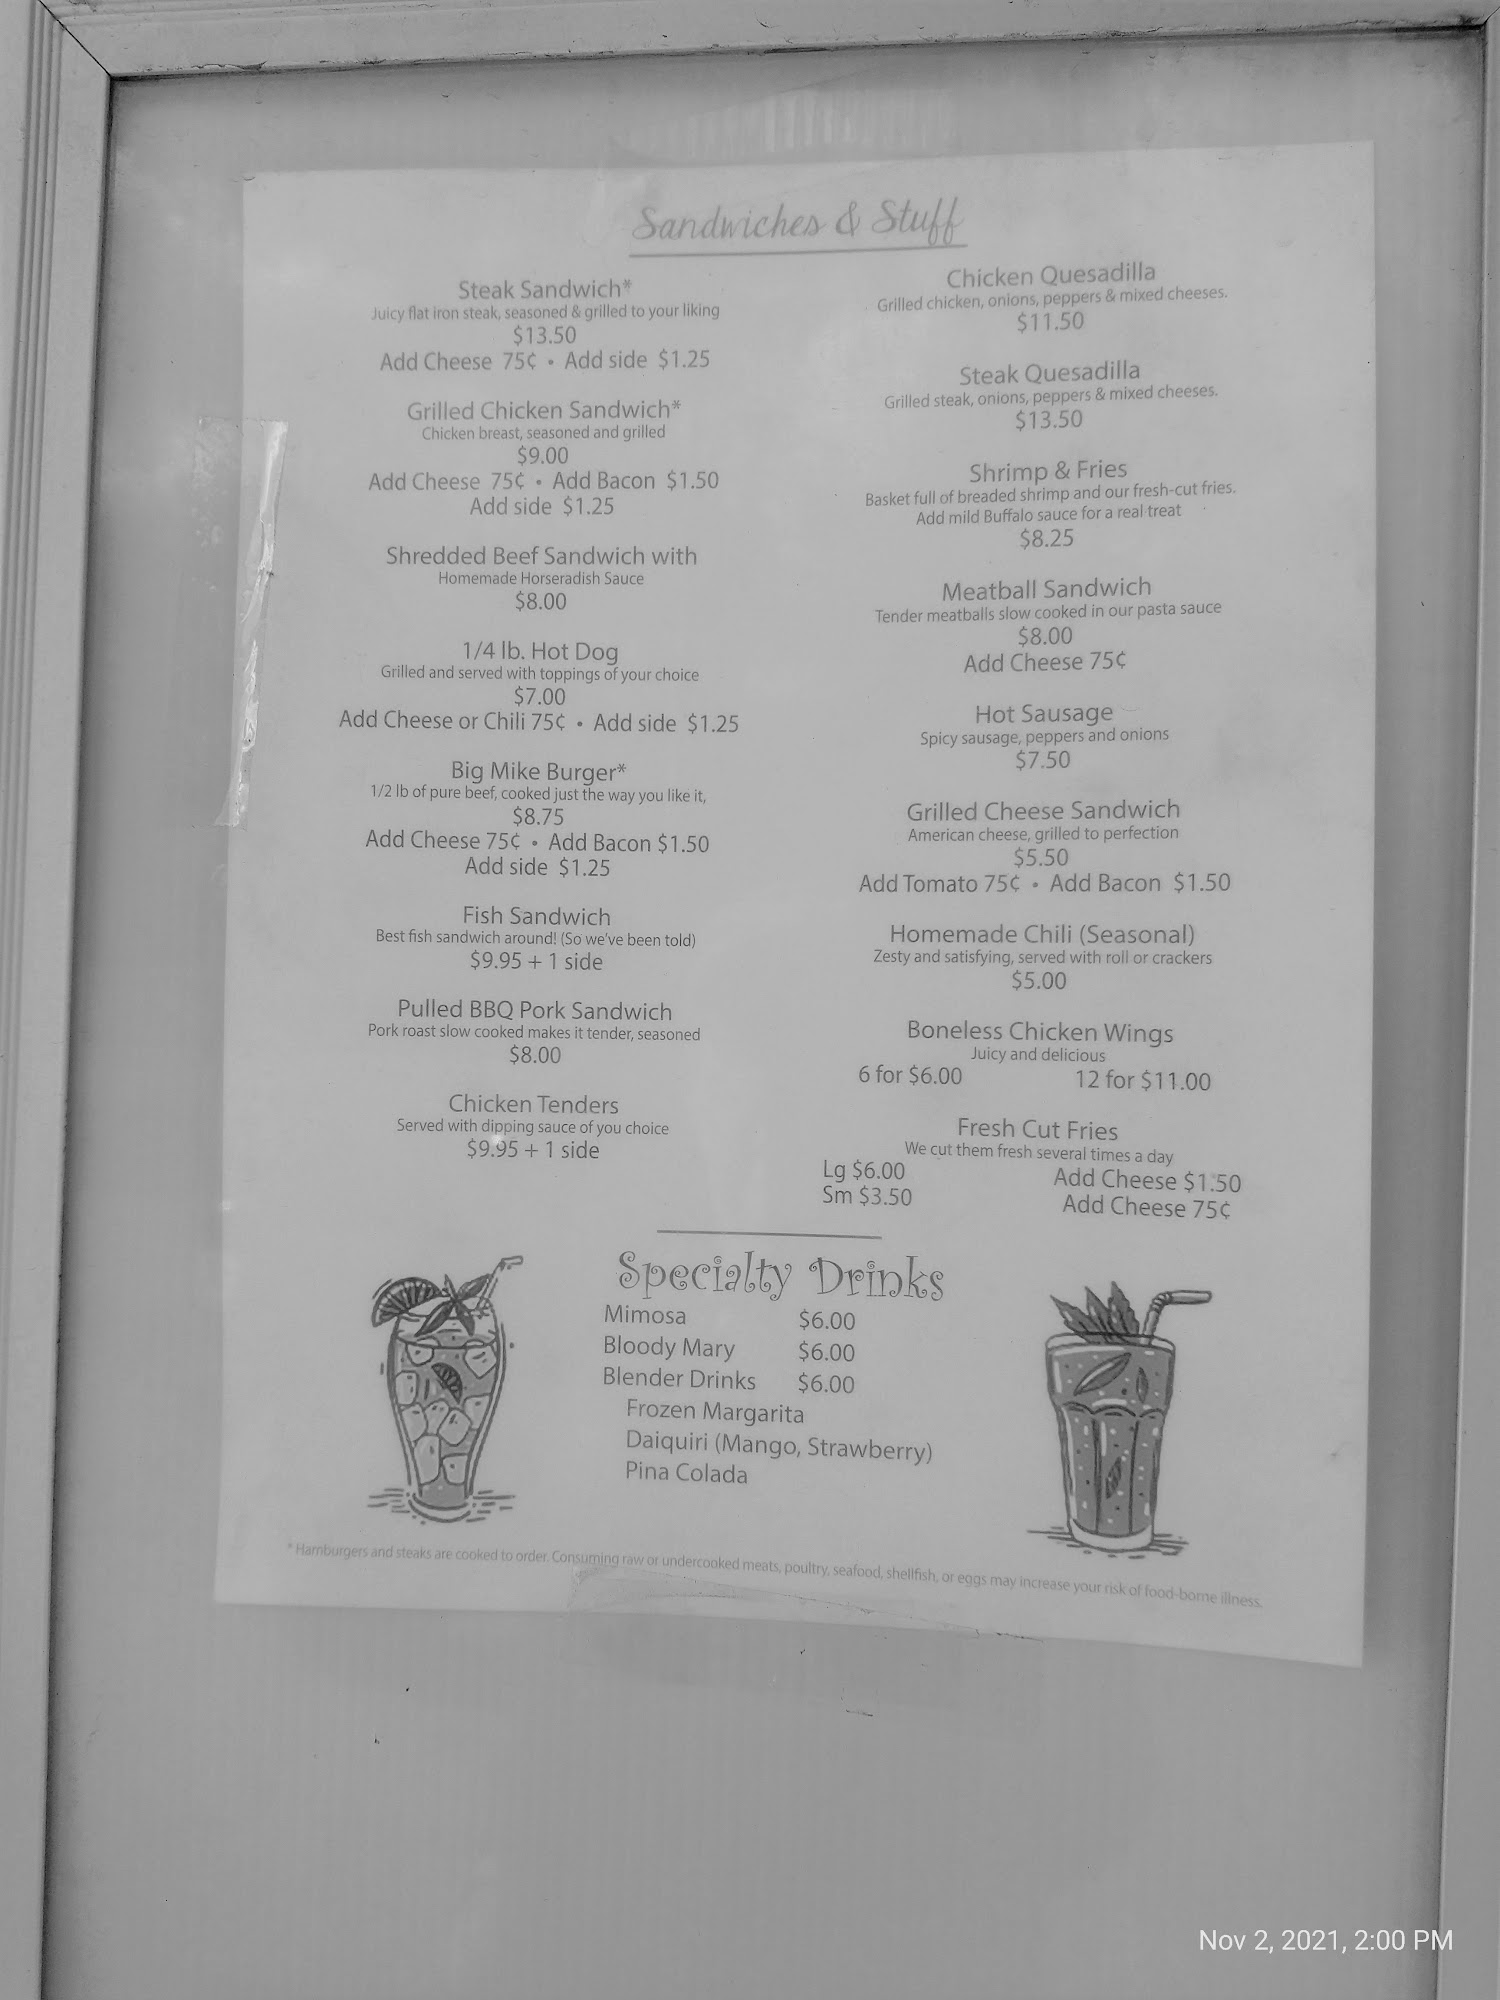 Sandwiches & Stuff
Steak Sandwich*
Juicy flat iron steak, seasoned & grilled to your liking
$13.50
Add Cheese 75¢ • Add side $1.25
Grilled Chicken Sandwich*
Chicken breast, seasoned and grilled
$9.00
Add Cheese 75¢ • Add Bacon $1.50
Add side $1.25
Shredded Beef Sandwich with
Homemade Horseradish Sauce
$8.00
1/4 lb. Hot Dog
Grilled and served with toppings of your choice
$7.00
Add Cheese or Chili 75¢ • Add side $1.25
Big Mike Burger*
1/2 lb of pure beef, cooked just the way you like it,
$8.75
Add Cheese 75¢ • Add Bacon $1.50
Add side $1.25
Fish Sandwich
Best fish sandwich around! (So we've been told)
$9.95 + 1 side
Pulled BBQ Pork Sandwich
Pork roast slow cooked makes it tender, seasoned
$8.00
Chicken Tenders
Served with dipping sauce of you choice
$9.95 + 1 side
Chicken Quesadilla
Grilled chicken, onions, peppers & mixed cheeses.
$11.50
Steak Quesadilla
Grilled steak, onions, peppers & mixed cheeses.
$13.50
Shrimp & Fries
Basket full of breaded shrimp and our fresh-cut fries.
Add mild Buffalo sauce for a real treat
$8.25
Meatball Sandwich
Tender meatballs slow cooked in our pasta sauce
$8.00
Add Cheese 75¢
Hot Sausage
Spicy sausage, peppers and onions
$7.50
Grilled Cheese Sandwich
American cheese, grilled to perfection
$5.50
Add Tomato 75¢ • Add Bacon $1.50
Homemade Chili (Seasonal)
Zesty and satisfying, served with roll or crackers
$5.00
Boneless Chicken Wings
Juicy and delicious
6 for $6.00 12 for $11.00
Fresh Cut Fries
We cut them fresh several times a day
Lg $6.00 Add Cheese $1.50
Sm $3.50 Add Cheese 75¢
Specialty Drinks
Mimosa $6.00
Bloody Mary $6.00
Blender Drinks $6.00
Frozen Margarita
Daiquiri (Mango, Strawberry)
Pina Colada
* Hamburgers and steaks are cooked to order. Consuming raw or undercooked meats, poultry, seafood, shellfish, or eggs may increase your risk of food-borne illness.
Nov 2, 2021, 2:00 PM